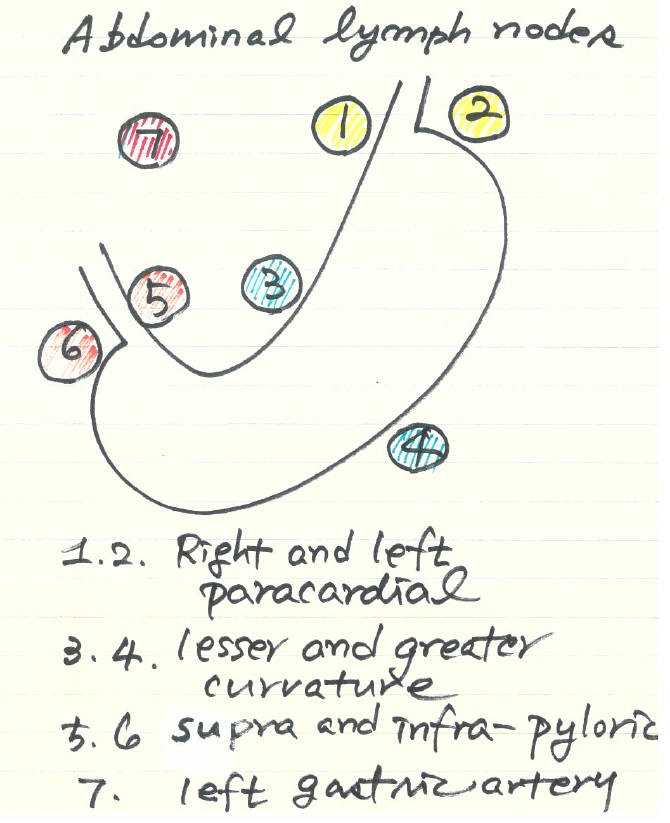 Abdominal lymph nodes
7 1 2
5 3
6
4
1.2. Right and left
paracardial
3.4. lesser and greater
curvature
5.6 supra and infra-pyloric
7. left gastric artery